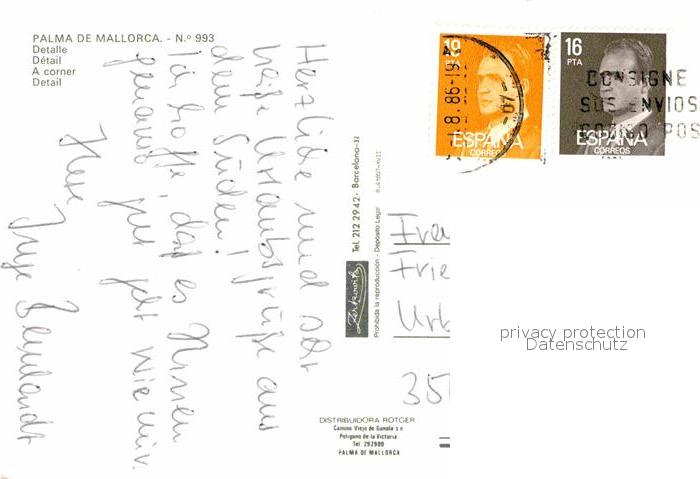 PALMA DE MALLORCA. - N.º 993
Detalle
Détail
A corner
Detail
Herzliche und sehr
heiße Urlaubsgrüße aus
dem Süden!
Ich hoffe, daß es Ihnen
genauso gut geht wie mir.
Ihre
Inge
Tel. 212 29 42 - Barcelona-32
Zerkowitz
Prohibida la reproducción - Depósito Legal
DISTRIBUIDORA ROTGER
Camino Viejo de Bunola s n
Polígono de la Victoria
Tel 292900
PALMA DE MALLORCA
19
PTA
ESPAÑA
CORREOS
16
PTA
ESPAÑA
CORREOS
8.86-19
CONSIGNE
SUS ENVIOS
CODIGO POS
Frau
Frie
Urb
35
privacy protection
Datenschutz